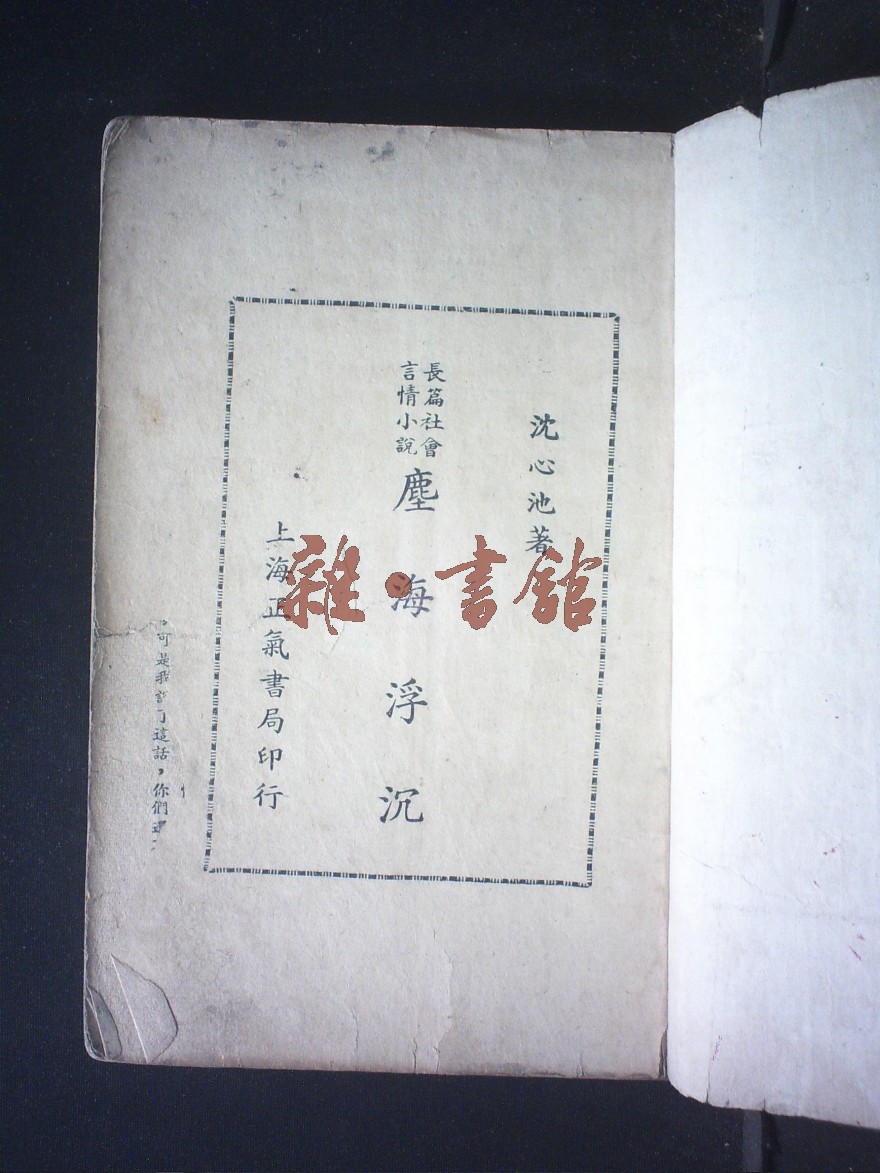 沈心池著
長篇社會
言情小說
塵海浮沉
上海正氣書局印行
可是我說了這話，你們還
雜•書館